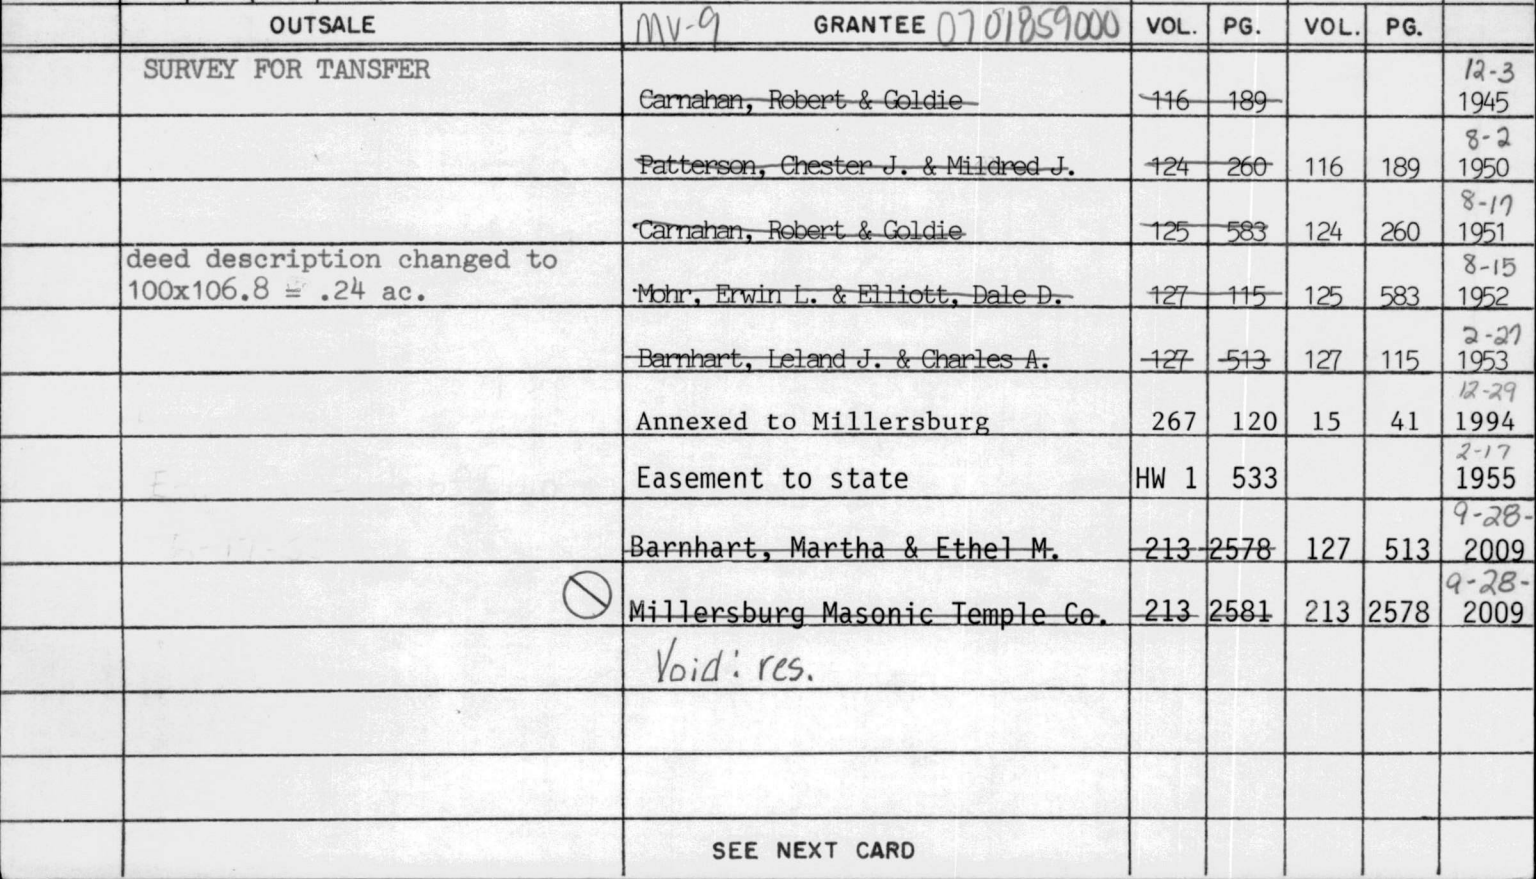 OUTSALE MV-9 GRANTEE 0701859000 VOL. PG. VOL. PG.
SURVEY FOR TANSFER
12-3
Carnahan, Robert & Goldie 116 189 1945
8-2
Patterson, Chester J. & Mildred J. 124 260 116 189 1950
8-17
Carnahan, Robert & Goldie 125 583 124 260 1951
deed description changed to
8-15
100x106.8 = .24 ac. Mohr, Erwin L. & Elliott, Dale D. 127 115 125 583 1952
2-27
Barnhart, Leland J. & Charles A. 127 513 127 115 1953
12-29
Annexed to Millersburg 267 120 15 41 1994
2-17
Easement to state HW 1 533 1955
9-28-
Barnhart, Martha & Ethel M. 213 2578 127 513 2009
9-28-
Millersburg Masonic Temple Co. 213 2581 213 2578 2009
Void: res.
SEE NEXT CARD